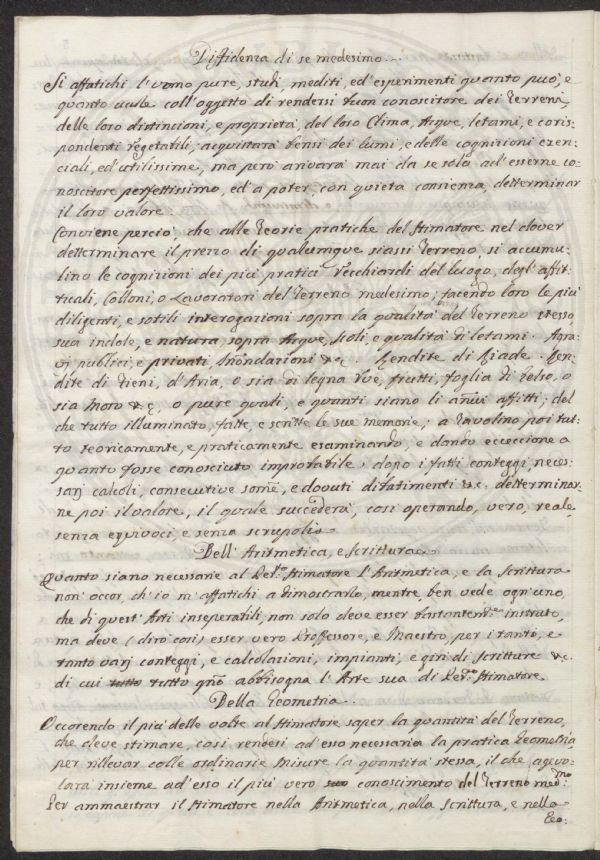 Diffidenza di se medesimo...
Si affatichi l'uomo pure, studi, mediti, ed' esperimenti quanto può, e
quanto vuole coll'oggetto di rendersi buon conoscitore dei Terreni,
delle loro distincioni, e proprietà, del loro Clima, Acque, letami, e coris-
pondenti vegetabili, acquistarà bensi dei lumi, e delle cognizioni ezen-
ciali, ed' utilissime, ma però arivarà mai da se solo ad' esserne co-
noscitore perfettissimo, ed' a poter, con quieta consienza, detterminar
il loro valore.
Conviene perciò che alle Teorie pratiche del Stimatore nel dover
detterminare il prezzo di qualumque siassi Terreno, si accumu-
lino le cognizioni dei più pratici Vecchiardi del luogo, degl' affit-
ticali, Colloni, o Lavoratori del Terreno medesimo; facendo loro le più
diligenti, e sotili interogazioni sopra la qualità del Terreno stesso,
sua indole, e natura, sopra Acque, Scoli, e qualità di letami. Agra-
vj publici, e privati, Inondazioni &c. Rendite di Biade. Ren-
dite di Fieni, d'Uva, o sia di legna Vive, frutti, foglia di Gelso, o
sia Moro &c, o pure quali, e quanti siano li anui affitti; del
che tutto illuminato, fatte, e scritte le sue memorie; a Tavolino poi tut-
to teoricamente, e praticamente esaminando, e dando ecceccione a
quanto fosse conosciuto improbabile; dopo i fatti conteggi, neces-
sarj calcoli, consecutive somẽ, e dovuti difatimenti &c. detterminar-
ne poi il valore, il quale succederà, cosi operando, vero, reale,
senza equivoci, e senza scrupoli.
Dell' Aritmetica, e Scrittura
Quanto siano necessarie al Per.to Stimatore l'Aritmetica, e la Scrittura
non occor, ch'io m'affatichi a dimostrarlo, mentre ben vede ogn'uno,
che di quest' Arti inseperabili, non solo deve esser bastantem.te instruto,
ma deve (dirò cosi) esser vero Proffessore, e Maestro, per i tanti, e
tanto varj conteggi, e calcolazioni, impianti, e giri di Scritture &c.
di cui tutto tutto gño abbisogna l'Arte sua di Per.to Stimatore.
Della Geometria...
Occorendo il più delle volte al Stimatore saper la quantità del Terreno,
che deve stimare, cosi rendesi ad'esso necessaria la pratica Geometria
per rillevar colle ordinarie Misure la quantità stessa, il che agevo-
larà insieme ad'esso il più vero conoscimento del Terreno med.mo
Per ammaestrar il Stimatore nella Aritmetica, nella Scrittura, e nella
Geo: